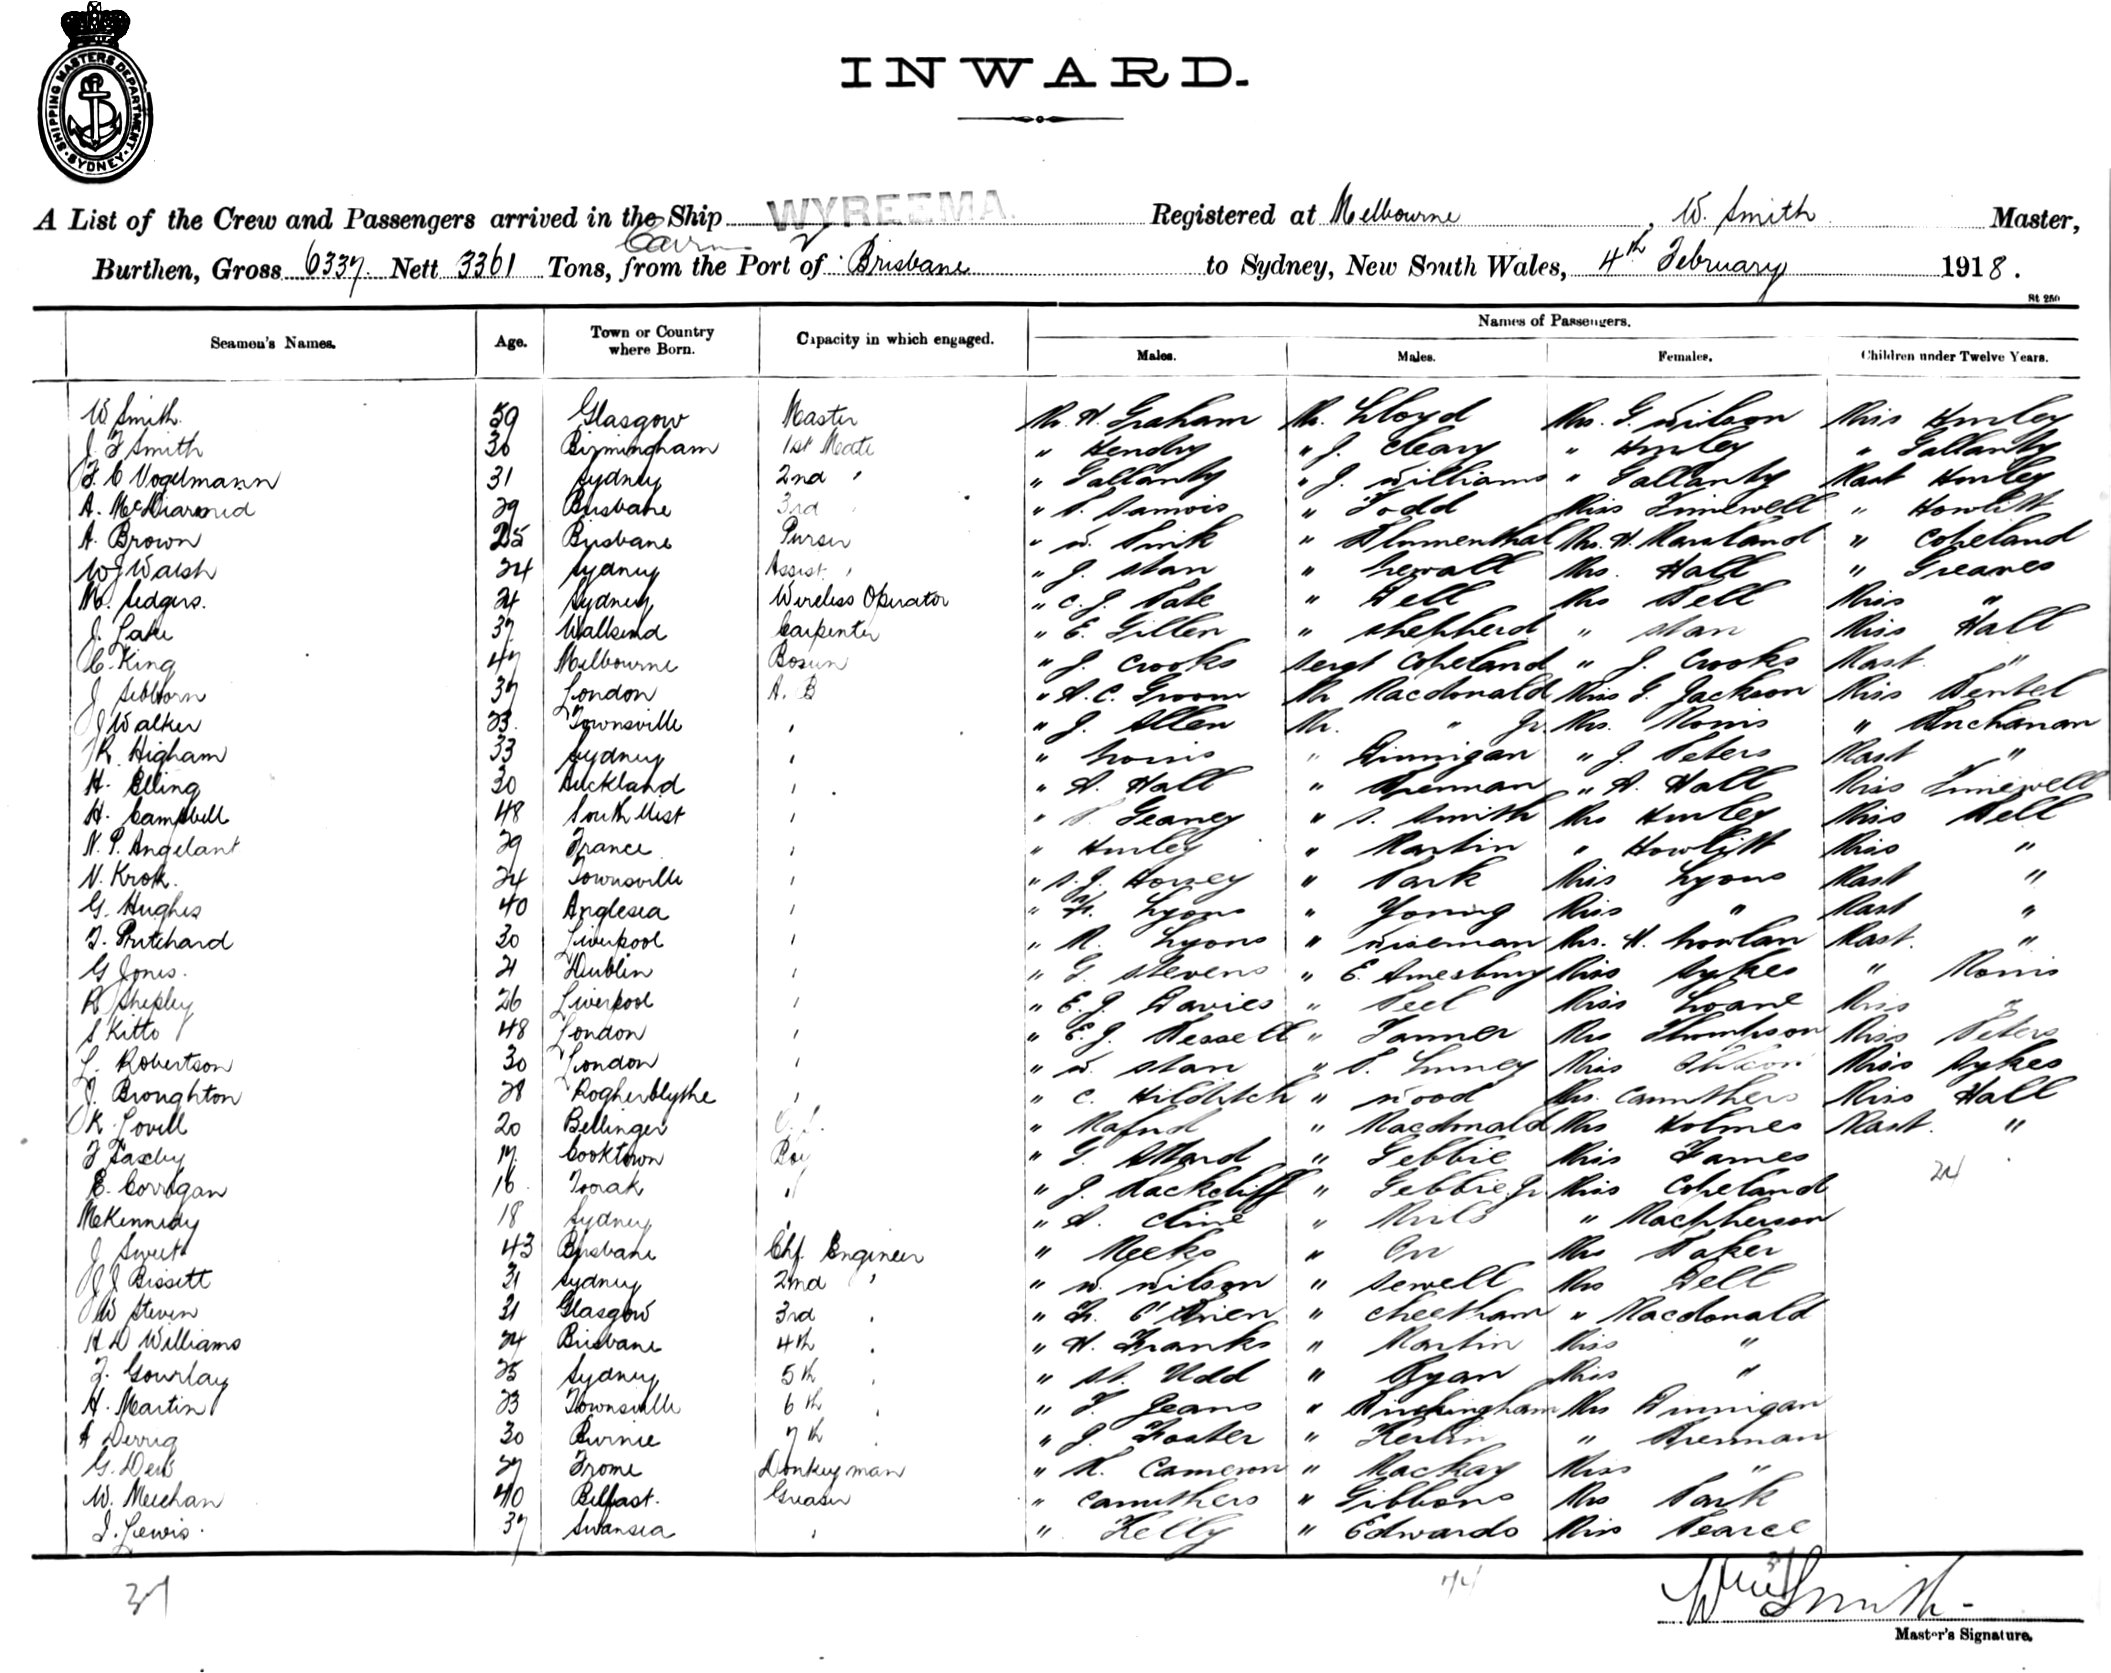 SHIPPING MASTERS DEPARTMENT. SYDNEY
INWARD.
A List of the Crew and Passengers arrived in the Ship WYREEMA. Registered at Melbourne, W. Smith Master,
Cairns &
Burthen, Gross 6337 Nett 3361 Tons, from the Port of Brisbane to Sydney, New South Wales, 4th February 1918.
St 250
Seamen's Names. Age. Town or Country where Born. Capacity in which engaged. Names of Passengers.
Males. Males. Females. Children under Twelve Years.
W. Smith. 59 Glasgow Master Mr. H. Graham Mr. Lloyd Mrs. G. Wilson Miss Hurley
J. F Smith 30 Birmingham 1st Mate " Hendry " J. Cleary " Hurley " Gallanty
F. C Vogelmann 31 Sydney 2nd " " Gallanty " J. Williams " Gallanty Mast Hurley
A. McDiarmid 29 Brisbane 3rd " " " Todd Miss Timewell " Howlitt
A. Brown 25 Brisbane Purser " W. " Blumenthal Mrs. H. Marsland " Copeland
W J Walsh 24 Sydney Assist. " " J. Stan " Newall Mrs. Hall " Greaves
M. Sedgers. 24 Sydney Wireless Operator " C. J. Pate " Bell Mrs Bell Miss "
J. Lake 37 Wallsend Carpenter " E. Gillen " Shepherd " Stan Miss Hall
C. King 47 Melbourne Bosun " J. Crooks Sergt Copeland " J. Crooks Mast. "
J Sibborn 37 London A. B " A. C. Groom Mr Macdonald Miss G. Jackson Miss Bentel
J Walker 23. Townsville " " J. Allen Mr. " Jr. Mrs. Morris " Buchanan
R. Higham 33 Sydney " " Norris " Finnigan " J. Peters Mast "
H. Elling 30 Auckland " " A. Hall " Brennan " A. Hall Miss Timewell
H. Campbell 48 South Uist " " P. Geaney " S. Smith Mrs Hurley Miss Bell
N. P. Angelant 29 France " " Hurley " Martin " Howlitt Miss "
N. Krok. 24 Townsville " " S. J. Horsey " Park Miss Lyons Mast "
G. Hughes 40 Anglesea " " Lyons " Young Miss " Mast "
T. Pritchard 30 Liverpool " " M. Lyons " Wiseman Mrs. H. Nowlan Mast. "
G Jones. 21 Dublin " " G. Stevens " E. Amesbury Miss Sykes " Morris
R Shepley 26 Liverpool " " E. J. Davies " Peel Miss Loane Miss "
S Kitto 48 London " " E. J. Hessell " Tanner Mrs Thompson Miss Peters
L. Robertson 30 London " " W. Stan " P. Linney Miss Miss Sykes
J. Broughton 28 " " C. Hilditch " Wood Mrs. Carruthers Miss Hall
K. Lovell 20 Bellinger O. S. " " Macdonald Mrs Holmes Mast. "
F Saxby 17. Cooktown Boy " G. Attard " Gebbie Miss James
24
E. Corrigan 16 Toorak " " J. Rackcliff " Gebbie Jr Miss Copeland
McKennedy 18 Sydney " " A. Cline " " Macpherson
J Sweet 43 Brisbane Chf. Engineer " Meeks " Orr Mrs Baker
J J Bissett 31 Sydney 2nd " " W. Wilson " Sewell Mrs Bell
W Steven 31 Glasgow 3rd " " O'Brien " Cheetham " Macdonald
H D Williams 24 Brisbane 4th " " H. Franks " Martin Miss "
F. Gourlay 25 Sydney 5th " " Udd " Ryan Miss "
H. Martin 23 Townsville 6th " " F. Jeans " Buckingham Mrs Finnigan
A Derrig 30 Burnie 7th " " J. Foster " Kerlin " Brennan
G. Dew 27 Frome Donkeyman " K. Cameron " Mackay Miss "
W. Meechan 40 Belfast. Greaser " Carruthers " Gibbons Mrs Park
I. Lewis. 37 Swansea " " Kelly " Edwards Miss Pearce
37 74 37
Wm Smith
Master's Signature.